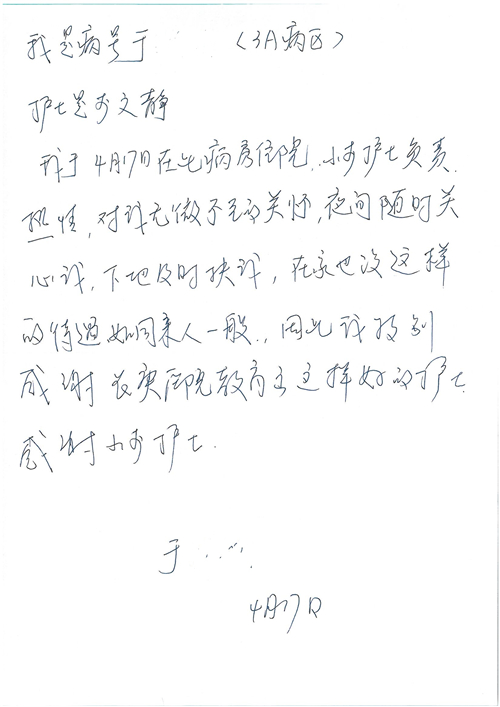 我是病号于 （3A病区）
护士是李文静
我于4月17日在此病房住院，小李护士负责、
热情，对我无微不至的关怀，夜间随时关
心我，下地及时扶我，在家也没这样
的待遇如同亲人一般，因此我特别
感谢长庚医院教育出这样好的护士
感谢小李护士.
于
4月17日